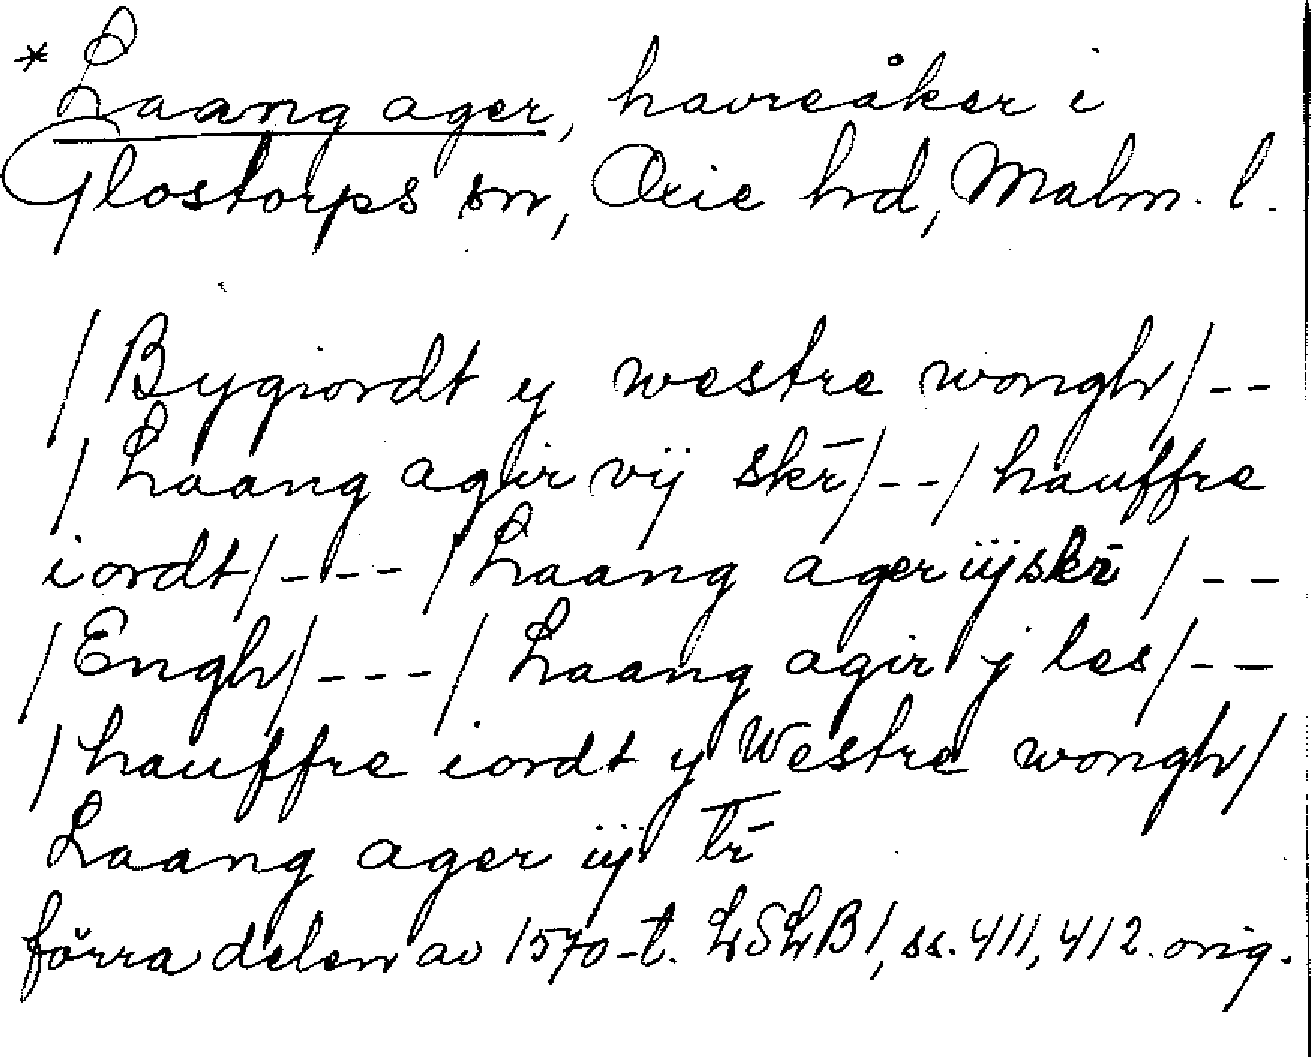 * Laang ager, havreåker i
Glostorps sn, Oxie hd, Malm. l.
/Bygiordt y westre wongh/--
/Laang agir vij skr̄/--/hauffre
iordt/---/Laang ager iij skr̄/--
/Engh/---/Laang agir j les/--
/hauffre iordt y Westre wongh/
Laang ager iij tr̄
förra delen av 1570-t. LSLB 1, ss. 411, 412. orig.